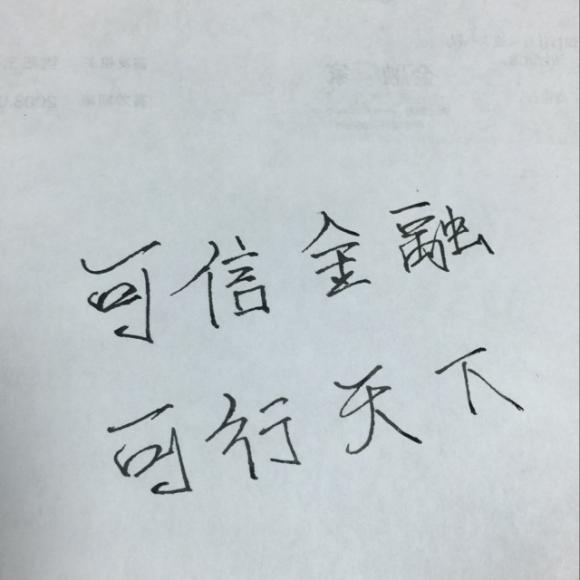 可信金融
可行天下